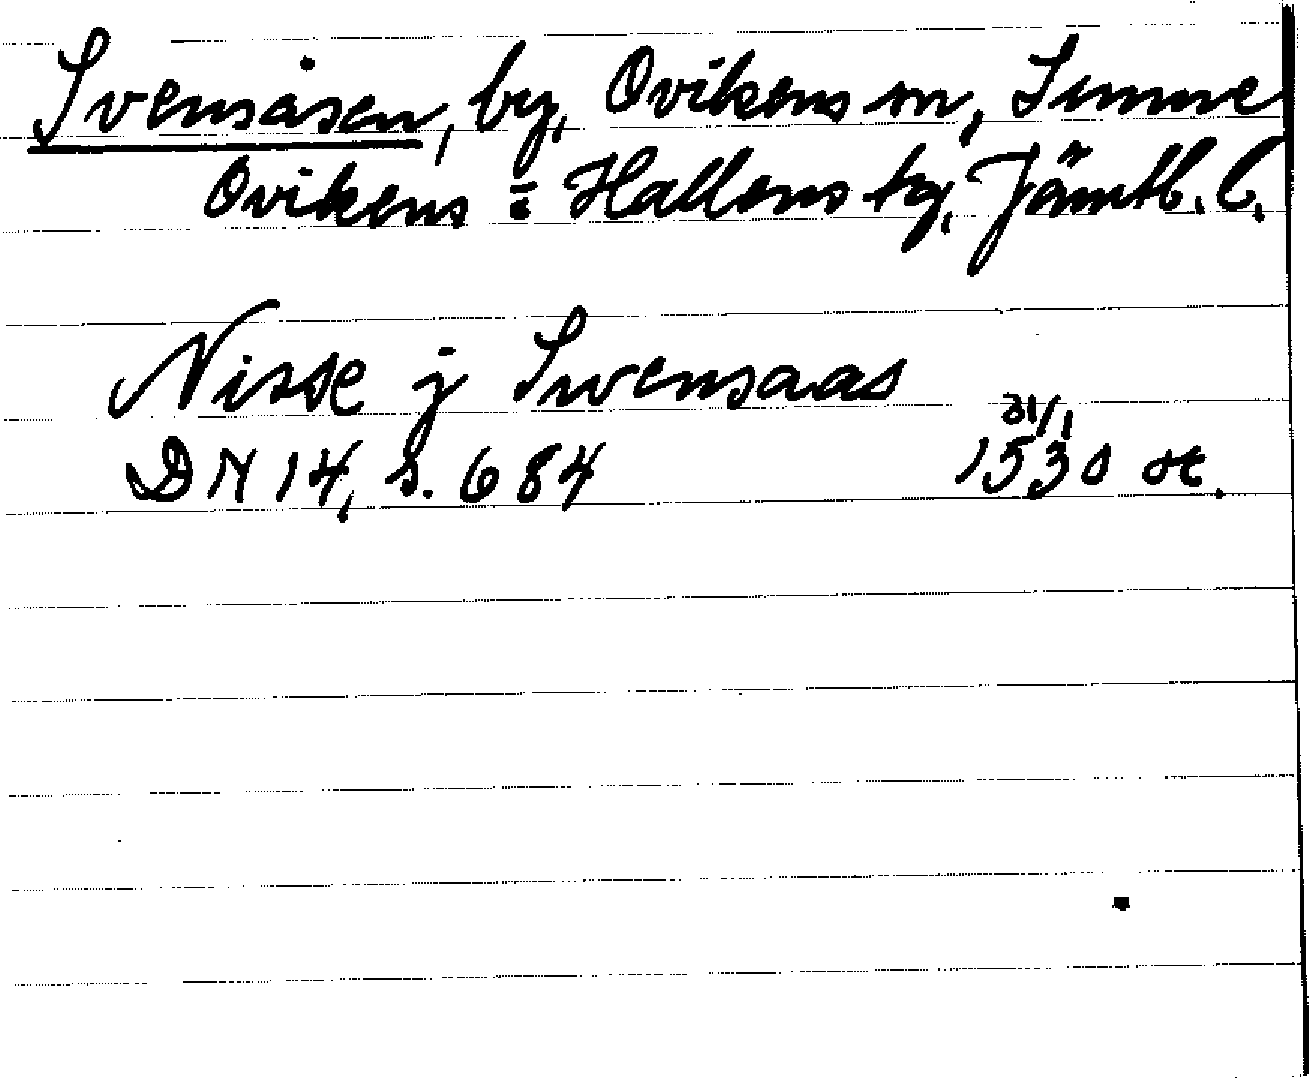 Svensåsen, by, Ovikens sn, Sunne
Ovikens = Hallens tg, Jämtl. l.
Nisse j Swensaas
31/1
DN 14, s. 684 1530 or.